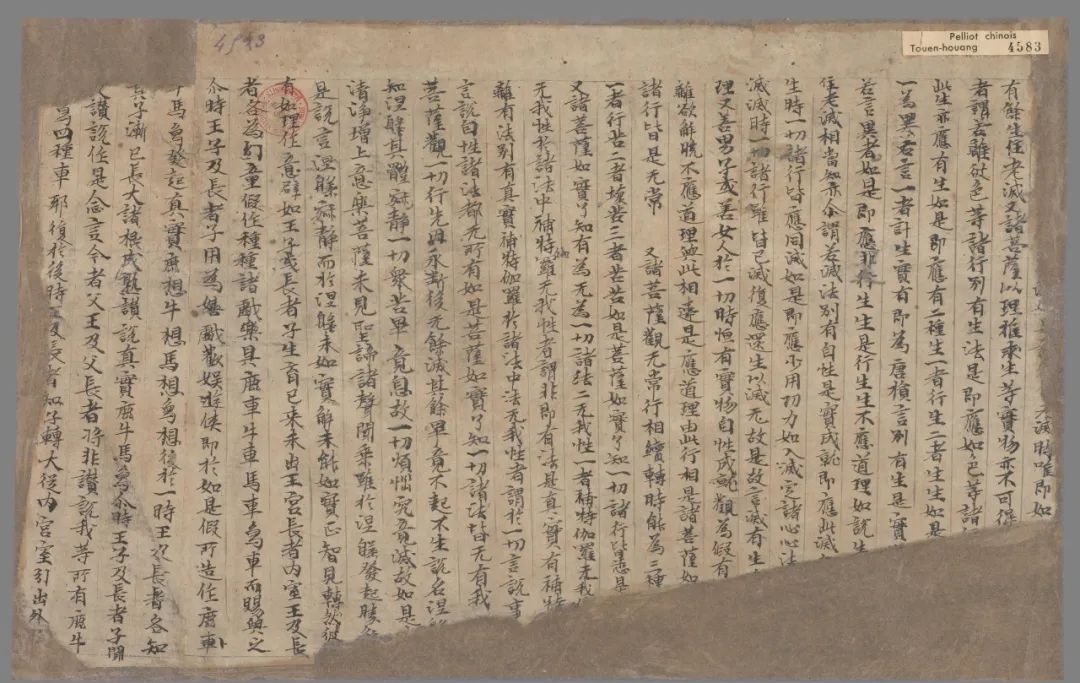 无滅時唯即如
有餘生住老滅又諸菩薩以理推求生等實物亦不可得
者謂若離於色等諸行別有生法是即應如色等諸
此生亦應有生如是即應有二種生一者行生二者生生如是
一為異若言一者計生實有即為唐捐言別有生是實
若言異者如是即應非行生生是行生生不應道理如說生
住老滅相當知亦尒謂若滅法別有自性是實成就即應此滅
生時一切諸行皆應同滅如是即應少用功力如入滅定諸心心法
滅滅時一切諸行雖皆已滅復應還生以滅无故是故言滅有生
理又善男子或善女人於一切時恒有實物自性成就觀為假有
離欲解脫不應道理與此相違是應道理由此行相是諸菩薩如
諸行皆是无常 又諸菩薩觀无常行相續轉時能為三種
一者行苦二者壞苦三者苦苦如是菩薩如實了知一切諸行皆悉是
又諸菩薩如實了知有為无為一切諸法二无我性一者補特伽羅无我
无我性於諸法中補特伽羅无我性者謂非即有法是真實有補特
離有法別有真實補特伽羅於諸法中法无我性者謂於一切言說事
言說自性諸法都无所有如是菩薩如實了知一切諸法皆无有我
菩薩觀一切行先因永斷後无餘滅其餘畢竟不起不生說名涅
知涅槃其體寂靜一切衆苦畢竟息故一切煩惱究竟滅故如是
清淨增上意樂菩薩未見聖諦諸聲聞乘雖於涅槃發起勝
是說言涅槃寂靜而於涅槃未如實解未能如實正智見轉然彼
有如理作意譬如王子或長者子生育已來未出王宮長者內室王及長
者各為幼童假作種種諸戲樂具鹿車牛車馬車象車而賜與之
尒時王子及長者子用為嬉戲歡娛遊佚即於如是假所造作鹿車
牛馬象發起真實鹿想牛想馬想象想後於一時王及長者各知
其子漸已長大諸根成熟讚說真實鹿牛馬象尒時王子及長者子聞
讚說作是念言今者父王及父長者將非讚說我等所有鹿牛
象四種車耶復於後時王及長者知子轉大從內宮室引出外
4583
Pelliot chinois
Touen-houang 4583